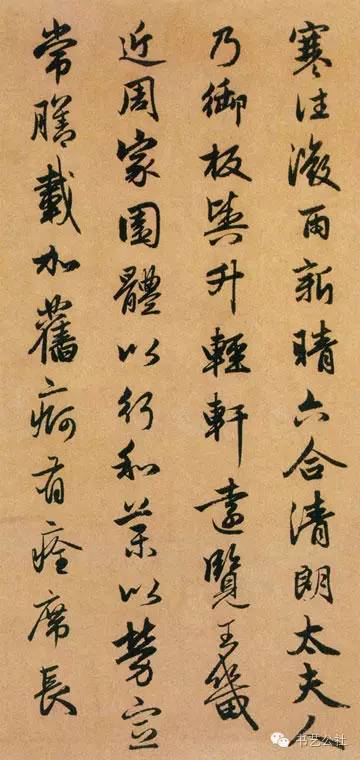 寒往微雨新晴六合清朗太夫人
乃御板輿升輕軒遠覽王畿
近周家園體以行和藥以勞宣
常膳載加舊痾有痊席長
书艺公社